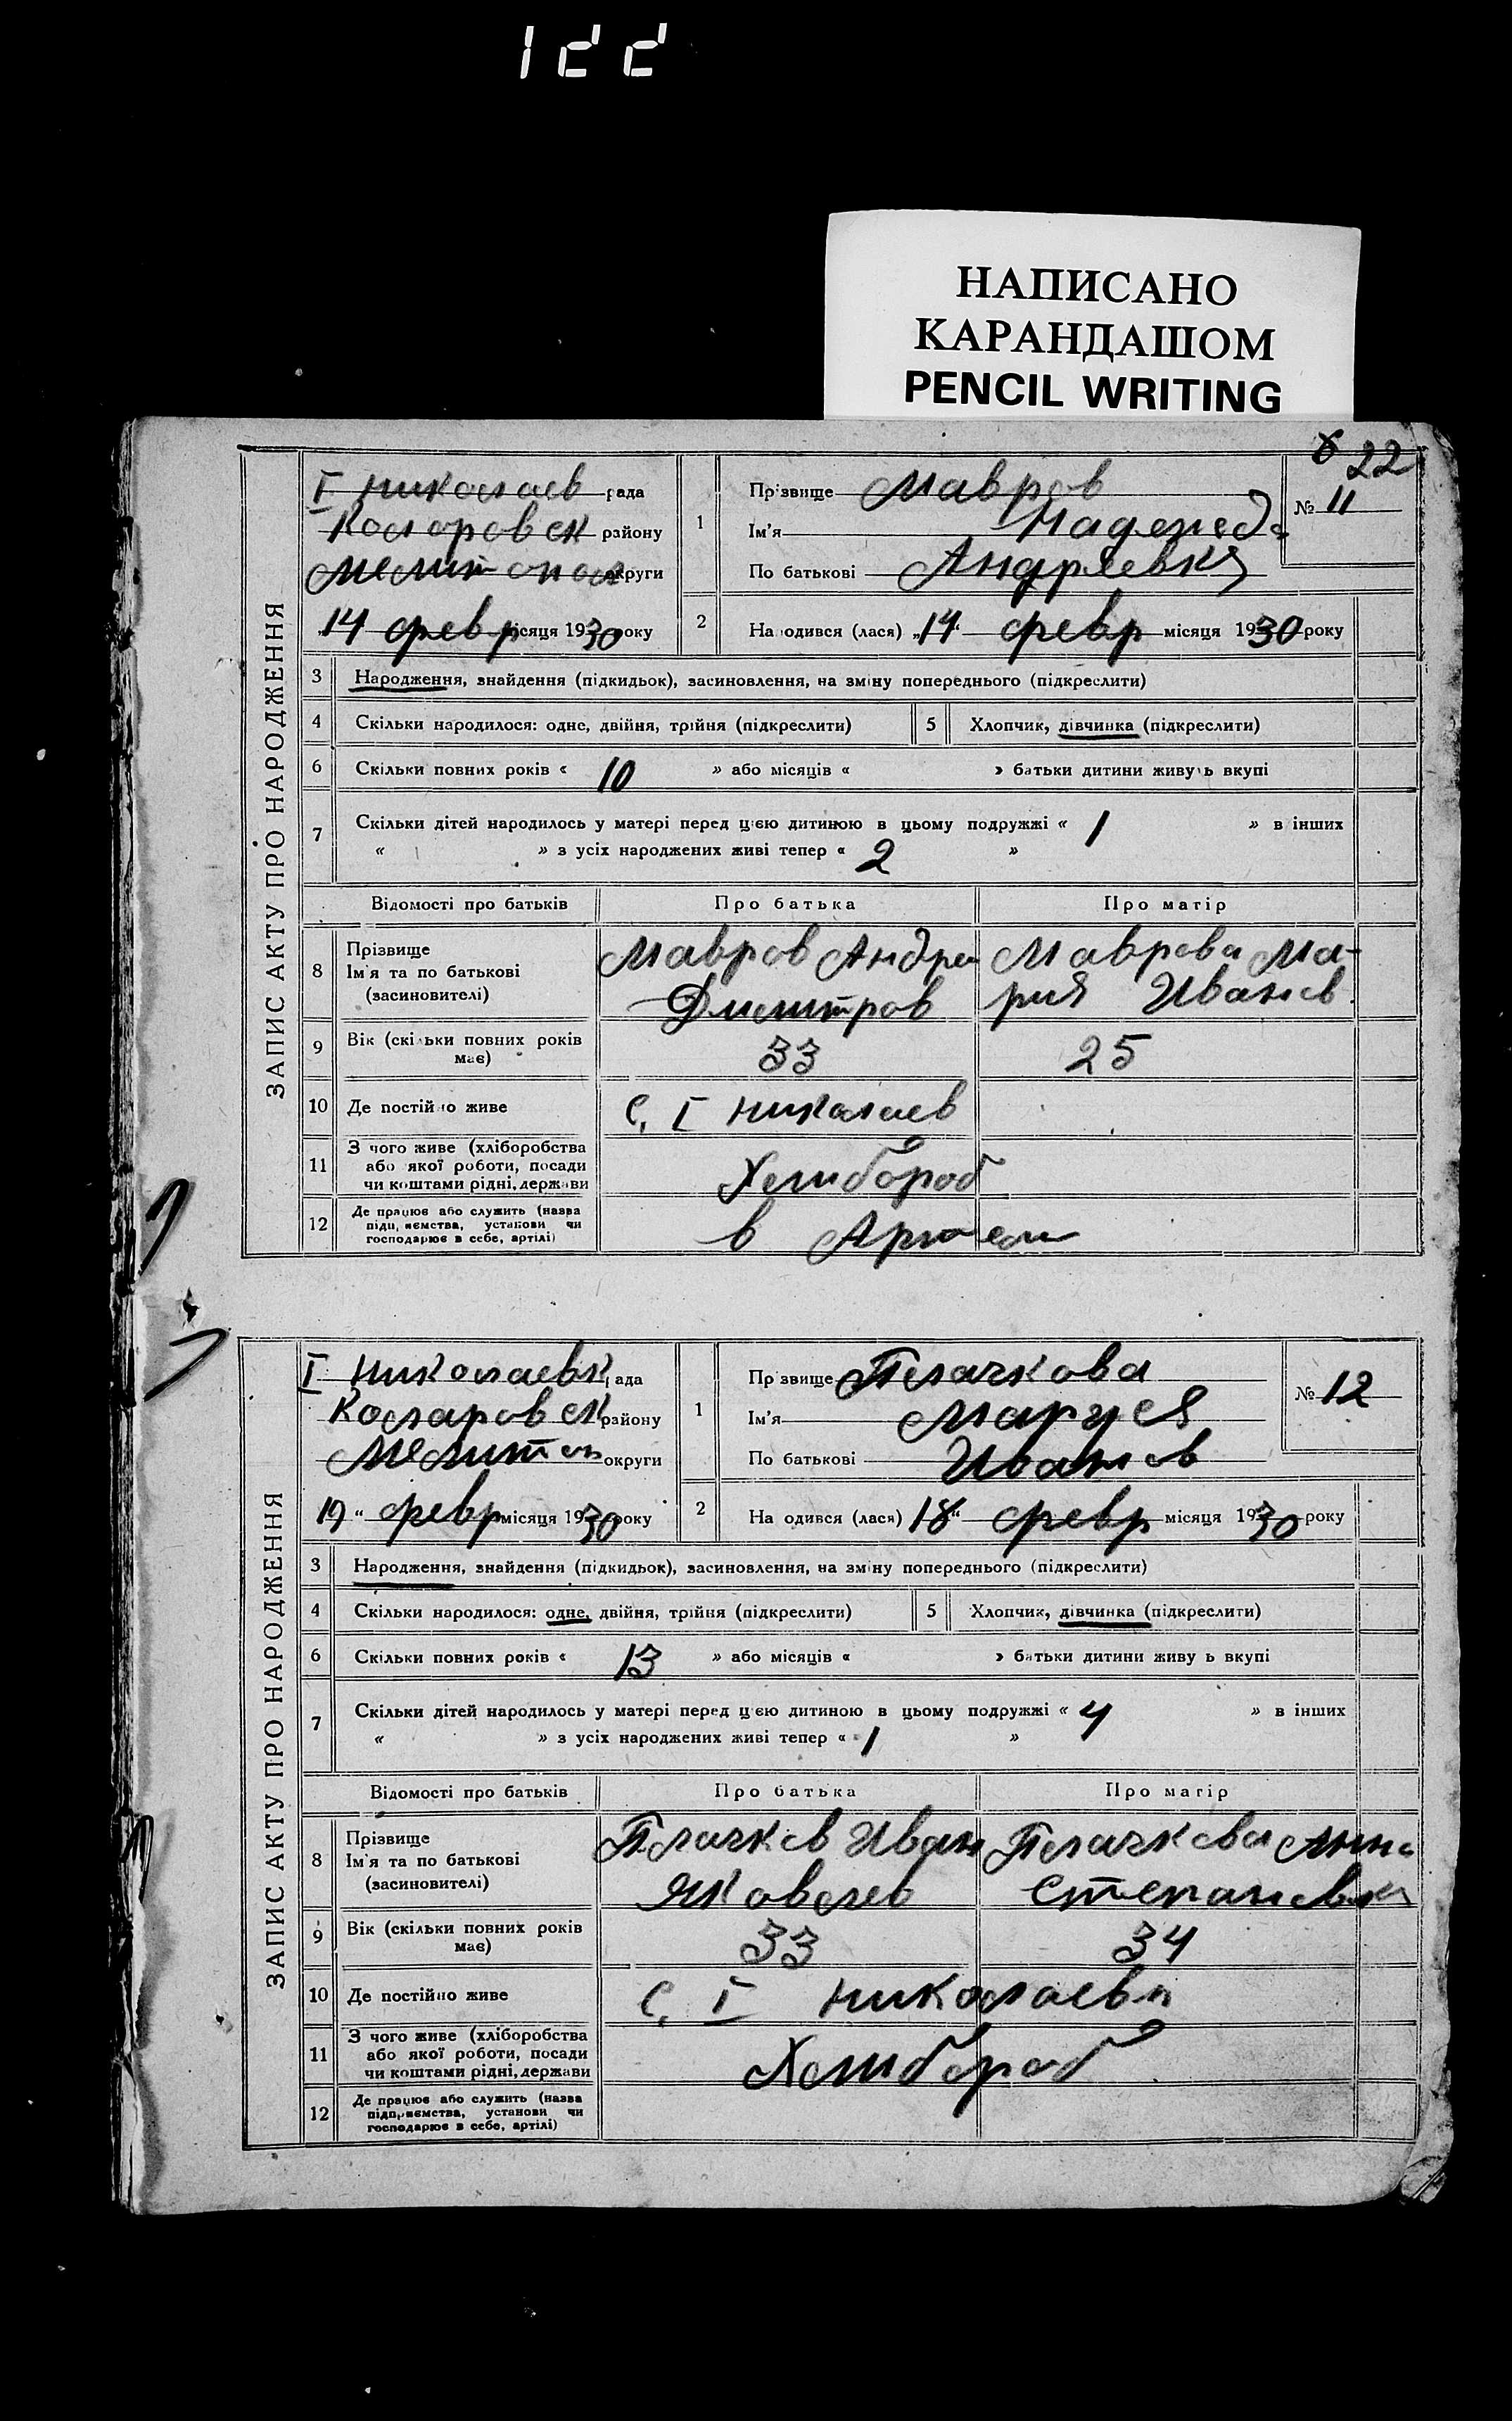 122
НАПИСАНО
КАРАНДАШОМ
PENCIL WRITING
22
ЗАПИС АКТУ ПРО НАРОДЖЕННЯ
I Николаев рада
Коларовск району
Мелитопол округи
14 февр місяця 1930 року
1
Прізвище Мавров
Ім'я Надежда
По батькові Андреевна
№ 11
2
Народився (лася) „14“ февр місяця 1930 року
3 Народження, знайдення (підкидьок), засиновлення, на зміну попереднього (підкреслити)
4 Скільки народилося: одне, двійня, трійня (підкреслити) 5 Хлопчик, дівчинка (підкреслити)
6 Скільки повних років « 10 » або місяців « » батьки дитини живуть вкупі
7 Скільки дітей народилось у матері перед цією дитиною в цьому подружжі « 1 » в інших
« » з усіх народжених живі тепер « 2 »
Відомості про батьків Про батька Про матір
8 Прізвище
Ім'я та по батькові
(засиновителі)
Мавров Андрей
Димитров
Маврова Ма-
рия Иванов
9 Вік (скільки повних років
має) 33 25
10 Де постійно живе С. I Николаев
11 З чого живе (хліборобства
або якої роботи, посади
чи коштами рідні, держави
Хлибороб
12 Де працює або служить (назва
підприємства, установи чи
господарює в себе, артілі)
в Артели
ЗАПИС АКТУ ПРО НАРОДЖЕННЯ
I Николаевк рада
Коларовск району
Мелитоп округи
19 “ февр місяця 1930 року
1
Прізвище Плачкова
Ім'я Маруся
По батькові Иванов
№ 12
2
Народився (лася) 18“ февр місяця 1930 року
3 Народження, знайдення (підкидьок), засиновлення, на зміну попереднього (підкреслити)
4 Скільки народилося: одне, двійня, трійня (підкреслити) 5 Хлопчик, дівчинка (підкреслити)
6 Скільки повних років « 13 » або місяців « » батьки дитини живуть вкупі
7 Скільки дітей народилось у матері перед цією дитиною в цьому подружжі « 4 » в інших
« » з усіх народжених живі тепер « 1 »
Відомості про батьків Про батька Про матір
8 Прізвище
Ім'я та по батькові
(засиновителі)
Плачков Иван
Яковлев
Плачкова Анна
Степановна
9 Вік (скільки повних років
має) 33 34
10 Де постійно живе С. I Николаевк
11 З чого живе (хліборобства
або якої роботи, посади
чи коштами рідні, держави
Хлибороб
12 Де працює або служить (назва
підприємства, установи чи
господарює в себе, артілі)